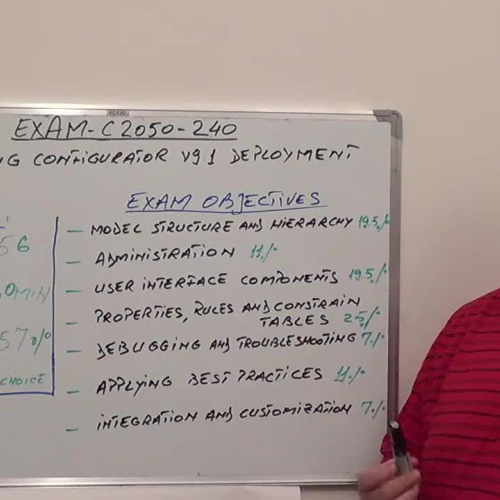 EXAM-C2050-240
NG CONFIGURATOR V9 1 DEPLOYMENT
EXAM OBJECTIVES
56
0 MIN
57%
CHOICE
- MODEL STRUCTURE AND HIERARCHY 19.5%
- ADMINISTRATION 11%
- USER INTERFACE COMPONENTS 19.5%
- PROPERTIES, RULES AND CONSTRAIN
TABLES 25%
- DEBUGGING AND TROUBLESHOOTING 7%
- APPLYING BEST PRACTICES 11%
- INTEGRATION AND CUSTOMIZATION 7%